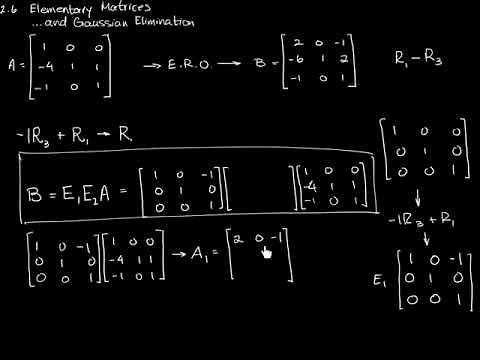 2.6 Elementary Matrices
...and Gaussian Elimination
A = [1 0 0; -4 1 1; -1 0 1] → E.R.O. → B = [2 0 -1; -6 1 2; -1 0 1] R₁ - R₃
-1R₃ + R₁ → R₁
[1 0 0; 0 1 0; 0 0 1]
B = E₁E₂A = [1 0 -1; 0 1 0; 0 0 1] [ ] [1 0 0; -4 1 1; -1 0 1]
-1R₃ + R₁
[1 0 -1; 0 1 0; 0 0 1] [1 0 0; -4 1 1; -1 0 1] → A₁ = [2 0 -1]
E₁ [1 0 -1; 0 1 0; 0 0 1]